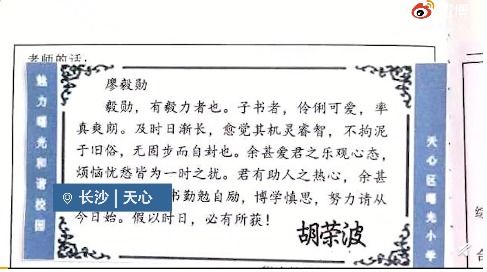 老师的话:
廖毅勋
毅勋，有毅力者也。子书者，伶俐可爱，率
真爽朗。及时日渐长，愈觉其机灵睿智，不拘泥
于旧俗，无固步而自封也。余甚爱君之乐观心态，
烦恼忧愁皆为一时之扰。君有助人之热心，余甚
书勤勉自励，博学慎思，努力请从
今日始。假以时日，必有所获！
胡荣波
魅力曙光和谐校园
天心区曙光小学
长沙 | 天心